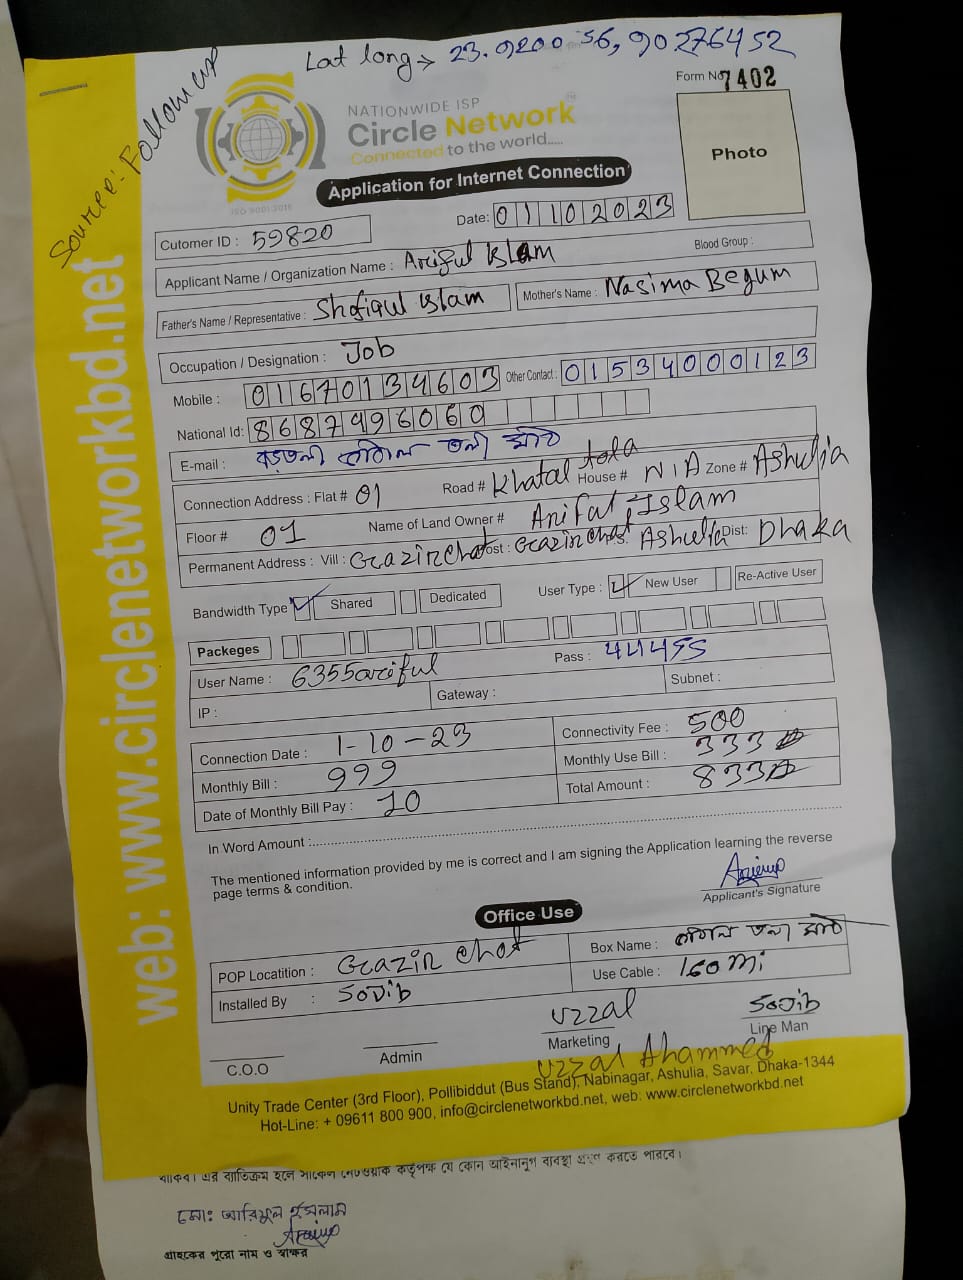 Lat long → 23.920056, 90276452
Source: Follow up
Form No 7402
NATIONWIDE ISP
Circle Network
Connected to the world.....
ISO 9001:2015
Photo
Application for Internet Connection
Date: 01102023
Cutomer ID : 59820
Applicant Name / Organization Name : Ariful Islam Blood Group :
Father's Name / Representative : Shofiqul Islam Mother's Name : Nasima Begum
Occupation / Designation : Job
Mobile : 01670134603 Other Contact : 01534000123
National Id: 8687496060
E-mail :
Connection Address : Flat # 01 Road # Khatal tola House # N/A Zone # Ashulia
Floor # 01 Name of Land Owner # Ariful Islam
Permanent Address : Vill : Gazirchot Post : Gazirchot P.S: Ashulia Dist: Dhaka
Bandwidth Type Shared Dedicated User Type : New User Re-Active User
Packeges
User Name : 6355ariful Pass : 44455
IP : Gateway : Subnet :
Connection Date : 1-10-23 Connectivity Fee : 500
Monthly Bill : 999 Monthly Use Bill : 333
Date of Monthly Bill Pay : 10 Total Amount : 833
In Word Amount :
The mentioned information provided by me is correct and I am signing the Application learning the reverse
page terms & condition.
Applicant's Signature
Office Use
POP Locatition : Gazir chot Box Name :
Installed By : Sojib Use Cable : 160 mi
Uzzal Sojib
C.O.O Admin Marketing Line Man
Uzzal Ahammed
Unity Trade Center (3rd Floor), Pollibiddut (Bus Stand), Nabinagar, Ashulia, Savar, Dhaka-1344
Hot-Line: + 09611 800 900, info@circlenetworkbd.net, web: www.circlenetworkbd.net
web: www.circlenetworkbd.net
থাকিব। এর ব্যতিক্রম হলে সার্কেল নেটওয়ার্ক কর্তৃপক্ষ যে কোন আইনানুগ ব্যবস্থা গ্রহণ করতে পারবে।
মোঃ আরিফুল ইসলাম
গ্রাহকের পুরো নাম ও স্বাক্ষর